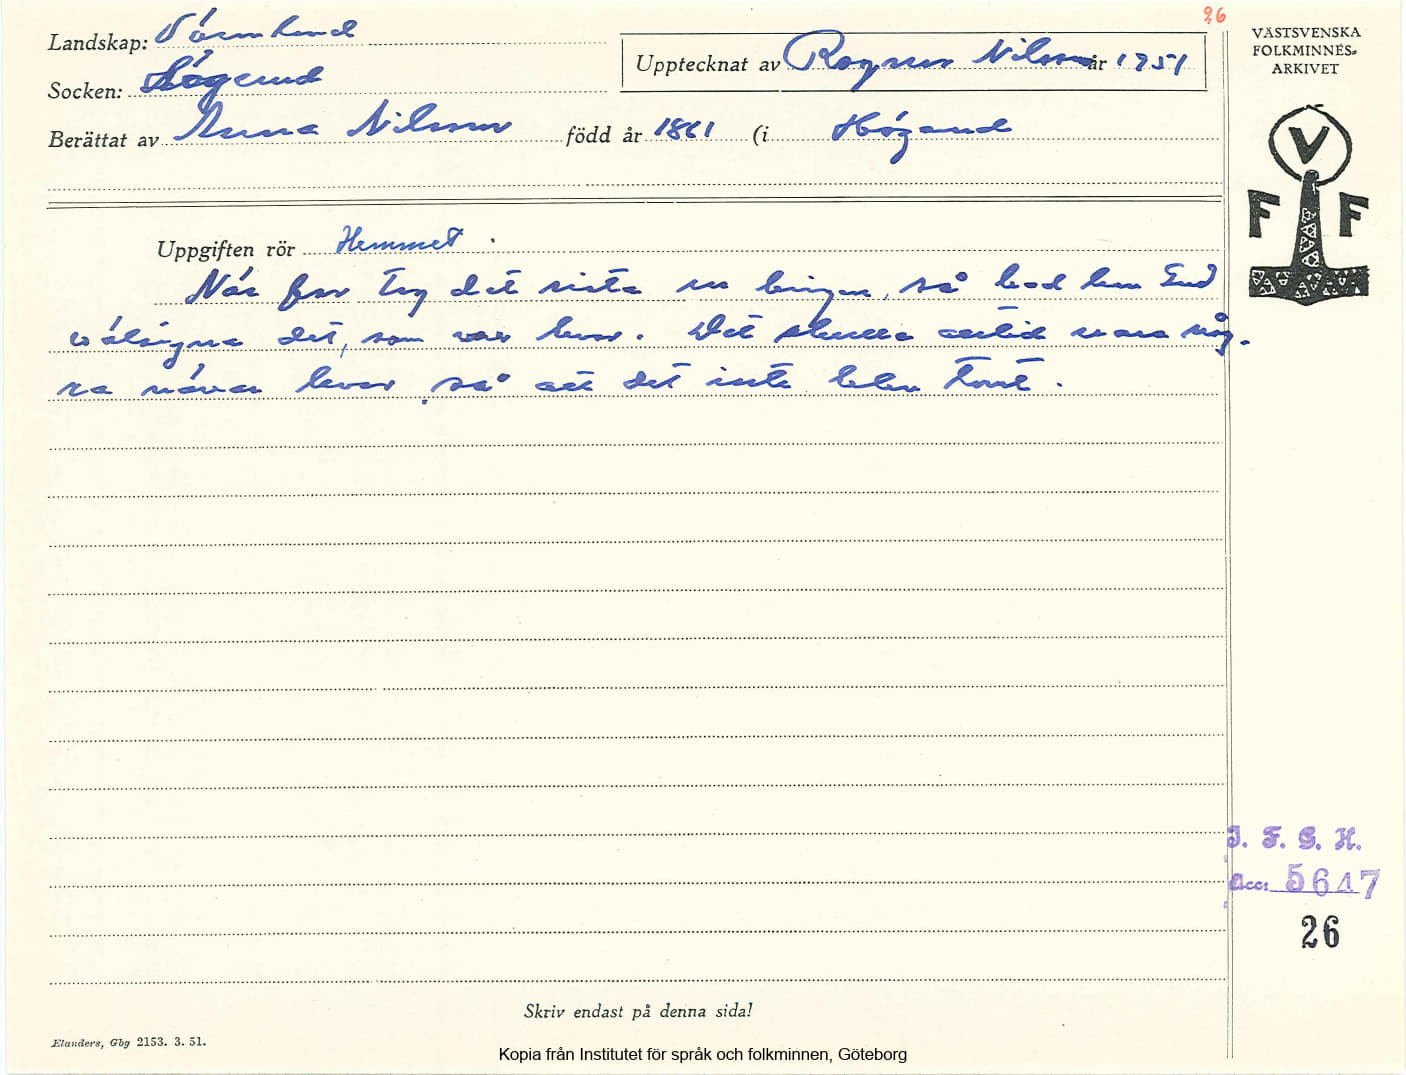 26
Landskap: Värmland
Upptecknat av Ragnar Nilsson år 1951
Socken: Högerud
Berättat av Anna Nilsson född år 1861 (i Högerud
VÄSTSVENSKA
FOLKMINNES-
ARKIVET
V
F F
Uppgiften rör Hemmet.
När far tog det sista ur bingen, så bad han Gud
välsigna det, som var kvar. Det skulle alltid vara någ-
ra nävar kvar, så att det inte blev tomt.
I. F. G. H.
Acc: 5647
26
Skriv endast på denna sida!
Elanders, Gbg 2153. 3. 51.
Kopia från Institutet för språk och folkminnen, Göteborg